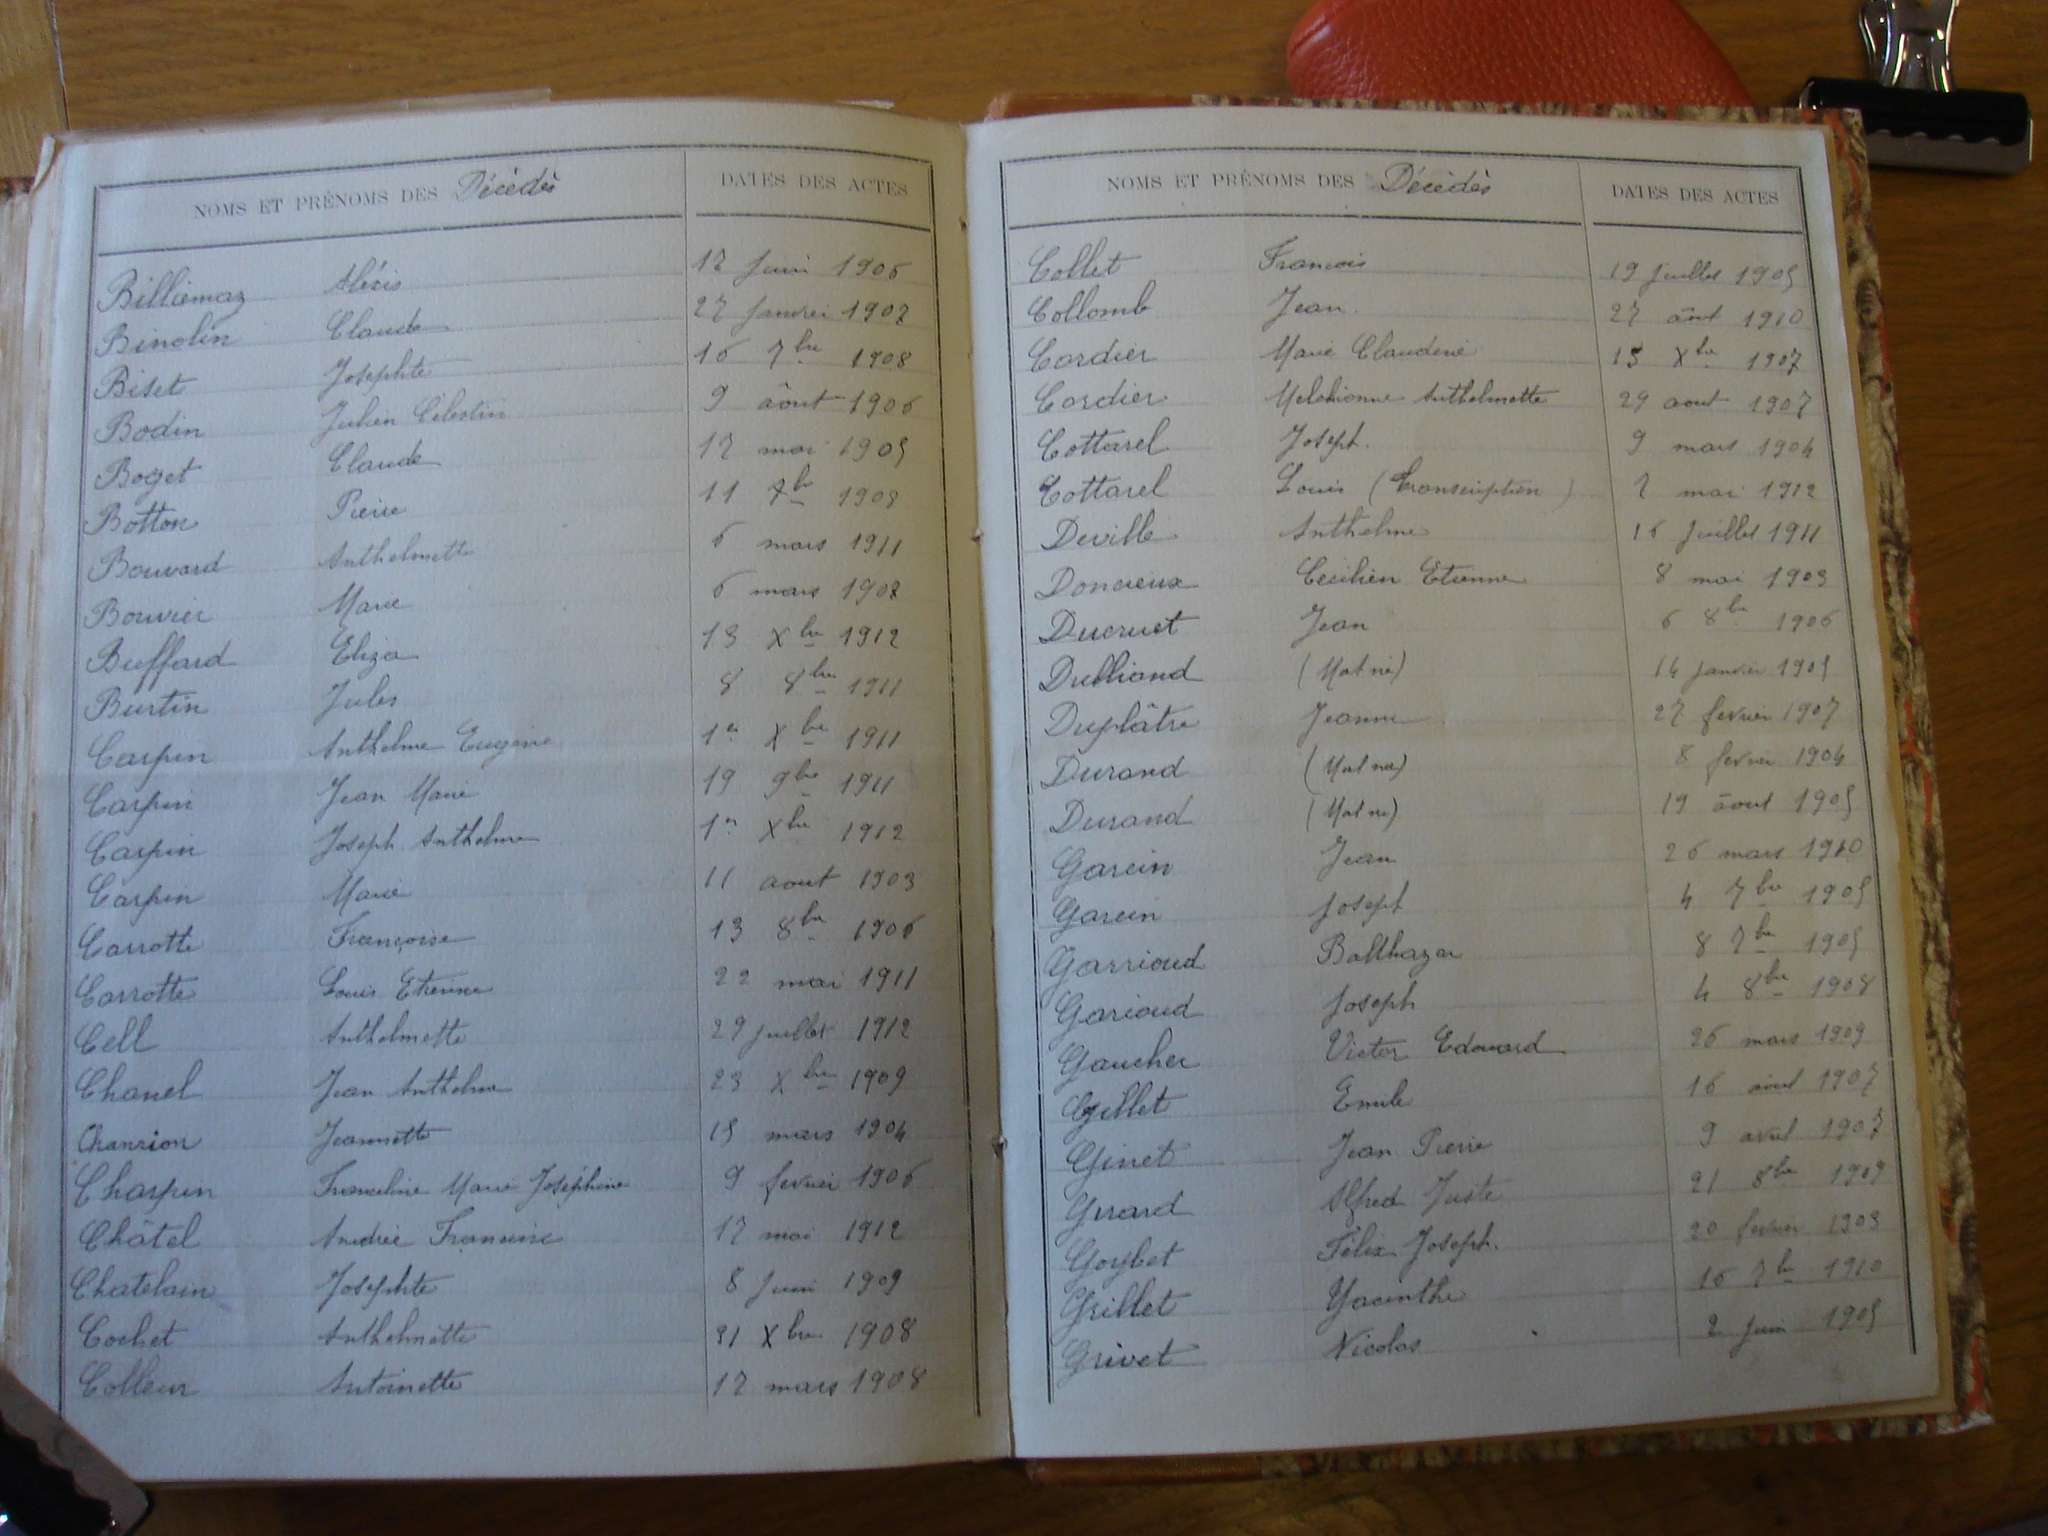 NOMS ET PRÉNOMS DES Décédés DATES DES ACTES
Billiemaz Aléxis 12 Juin 1906
Binolin Claude 27 Janvier 1907
Biset Josephte 16 7bre 1908
Bodin Julien Célestin 9 âout 1906
Boget Claude 12 mai 1905
Botton Pierre 11 7bre 1908
Bouvard Anthelmette 6 mars 1911
Bouvier Marie 6 mars 1908
Buffard Eliza 13 Xbre 1912
Burtin Jules 8 8bre 1911
Carpin Anthelme Eugène 1er Xbre 1911
Carpin Jean Marie 19 9bre 1911
Carpin Joseph Anthelme 1er Xbre 1912
Carpin Marie 11 aout 1903
Carrotte Françoise 13 8bre 1906
Carrotte Louis Etienne 22 mai 1911
Cell Anthelmette 29 juillet 1912
Chanel Jean Anthelme 23 Xbre 1909
Chanrion Jeannette 15 mars 1904
Charpin Franceline Marie Joséphine 9 fevrier 1906
Châtel Andrée Francine 12 mai 1912
Chatelain Josephte 8 Juin 1909
Cochet Anthelmette 31 Xbre 1908
Colleur Antoinette 12 mars 1908
NOMS ET PRÉNOMS DES Décédés DATES DES ACTES
Collet Francois 19 juillet 1905
Collomb Jean 27 âout 1910
Cordier Marie Claudine 15 Xbre 1907
Cordier Melchionne Anthelmette 29 aout 1907
Cottarel Joseph 9 mars 1904
Cottarel Louis (Transcription) 2 mai 1912
Deville Anthelme 16 Juillet 1911
Doncieux Cecilien Etienne 8 mai 1903
Ducruet Jean 6 8bre 1906
Dulliand (Mort né) 14 janvier 1905
Duplâtre Jeanne 27 fevrier 1907
Durand (Mort née) 8 fevrier 1904
Durand (Mort né) 19 âout 1905
Garcin Jean 26 mars 1910
Garcin Joseph 4 7bre 1905
Garrioud Balthazar 8 7bre 1905
Garioud Joseph 4 8bre 1908
Gaucher Victor Edouard 26 mars 1909
Gillet Emile 16 aout 1907
Ginet Jean Pierre 9 avril 1907
Girard Alfred Juste 21 8bre 1909
Goybet Félix Joseph 20 fevrier 1903
Grillet Yacinthe 16 7bre 1910
Grivet Nicolas 2 Juin 1905